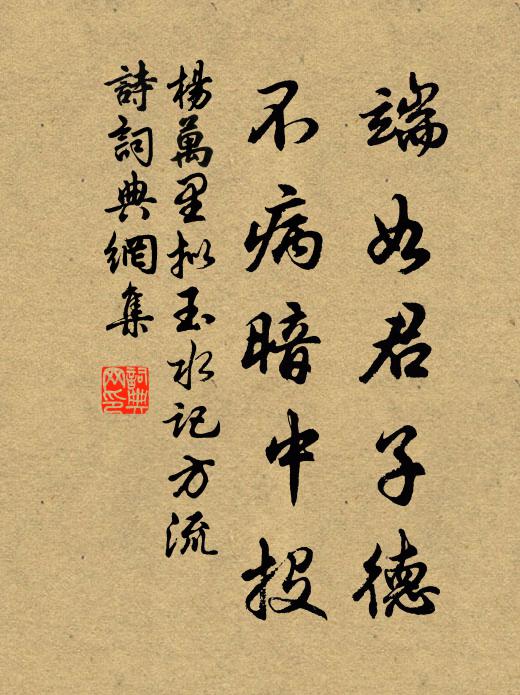 端如君子德
不病暗中投
楊萬里拟玉水记方流
詩詞典網集
詞典网印